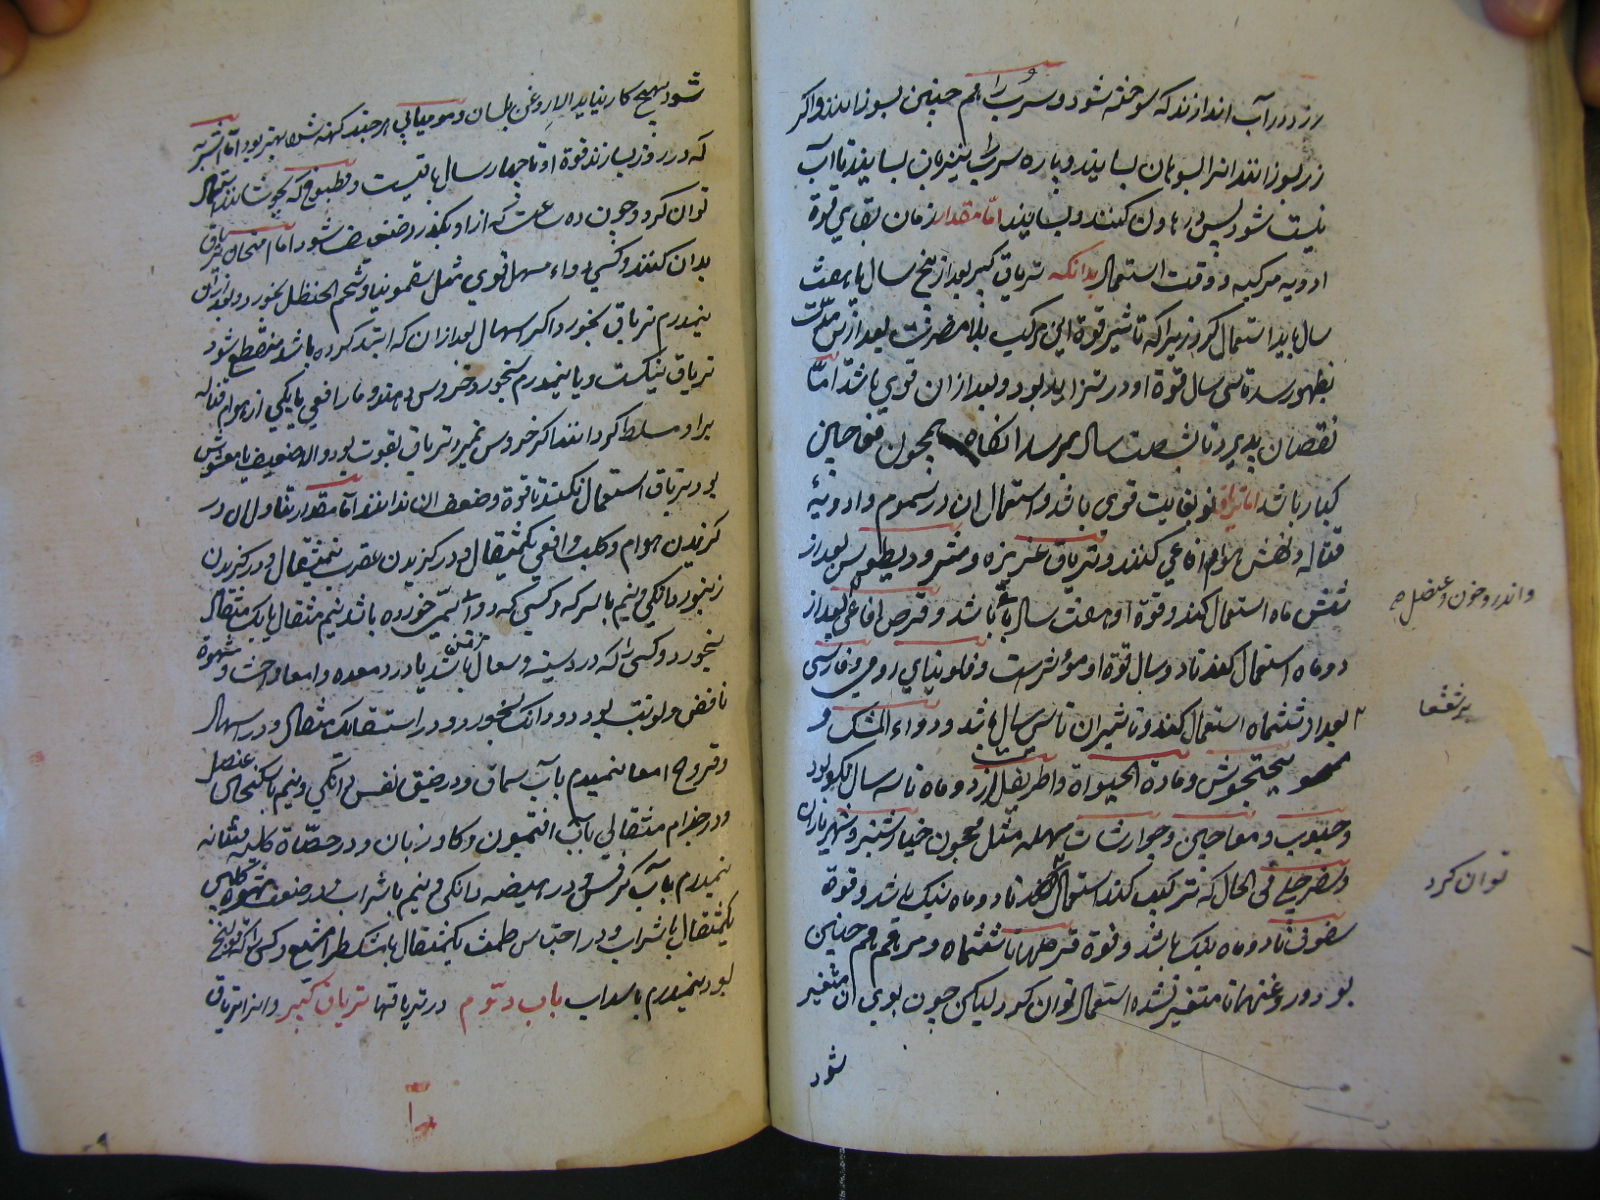 در آب اندازند که سوخته شود و سرب را هم چنین بسوزانند و اگر
زر بسوزانند انرا بسوهان بسایند و پاره سرب نیز بان بسایند تا آب
نیست شود پس در هاون کنند و بسایند اما مقدار زمان بقای قوة
ادویه مرکبه و وقت استعمال بدانکه تریاق کبیر بعد از پنج سال یا هفت
سال باید استعمال کرد زیرا که تاثیر قوة این مرکب بعد از مدت
بظهور رسد تا سی سال قوة او در تزاید بود و بعد از ان قوی باشد اما
نقصان پذیرد تا بشصت سال برسد انکاه همچون معاجین
کبار باشد اما تریاق نو بغایت قوی باشد و استعمال ان در سموم و ادویهٔ
قتاله و نهش هوام افاعی کنند و تریاق عزیزه و مثرودیطوس بعد از
شش ماه استعمال کنند و قوة او هفت سال باشد و قرص افاعی بعد از
دو ماه استعمال کنند تا دو سال قوة او مؤثرست و فلونیای رومی و فارسی
بعد از ششماه استعمال کنند و تاثیر ان تا سی سال باشد و دواء المشک و
سجتجوش و مادة الحیواة و اطریفل از دو ماه تا سه سال نیکو بود
و حبوب و معاجین و جوارشات مسهله مثل معجون خیارشنبر و شهریاران
فی الحال که ترکیب کنند استعمال کنند تا دو ماه نیک باشد و قوة
سفوف تا دو ماه نیک باشد و قوة قرصها تا ششماه و مرهم هم چنین
بود و روغنها تا متغیر نشده استعمال توان کرد لیکن چون بوی ان متغیر
شود
و اندروخون و عنصل
برشعثا
توان کرد
شود بهیچ کار نیاید الا روغن بلسان و مومیایی هر چند کهنه شود بهتر بود اما اشربه
که در روز بسازند قوة او تا چهار سال باقیست و مطبوخ که بجوشانند استعمال
توان کرد و چون ده ساعت از او بگذرد ضعیف شود اما امتحان تریاق
بدان کنند و کسی دواء مسهل قوی مثل سقمونیا و شحم الحنظل بخورد و بعد از ان
نیمدرم تریاق بخورد اکر اسهال بعد از ان که ابتدا کرده باشد منقطع شود
تریاق نیکست و یا نیمدرم بخورد خروس دهند و مار افعی یا یکی از هوام قتاله
بر او مسلط کردانند اکر خروس نمیرد تریاق بقوت بود و الا ضعیف یا مغشوش
بود تریاق استعمال نکنند تا قوة و ضعف ان ندانند اما مقدار تناول ان در
کزیدن هوام و کلب و افعی یکمثقال و در کزیدن عقرب نیمثقال و در کزیدن
زنبور دانکی و نیم با سرکه و کسی که دوای سمی خورده باشد نیم مثقال یا یک مثقال
بخورد و کسی را که درد سینه و سعال مزمن باشد یا درد معده و امعا و احشا و شهوة
ناقص و لوبت بود دو دانک بخورد و در استسقا یک مثقال و در اسهال
و قروح امعا نیمدرم بآب سماق و در ضیق نفس دانکی و نیم با سکنجبین عنصل
و در جذام مثقالی بآب افتیمون و کاو زبان و در حصاة کلیه و مثانه
نیمدرم بآب کرفس و در هیضه دانکی و نیم با شراب و در ضعف شهوة کلبی
یکمثقال با شراب و در احتباس طمث یکمثقال با مشکطرامشیع و کسی را که قولنج
بود نیمدرم با سداب باب دوم در تریاقها تریاق کبیر و انرا تریاق